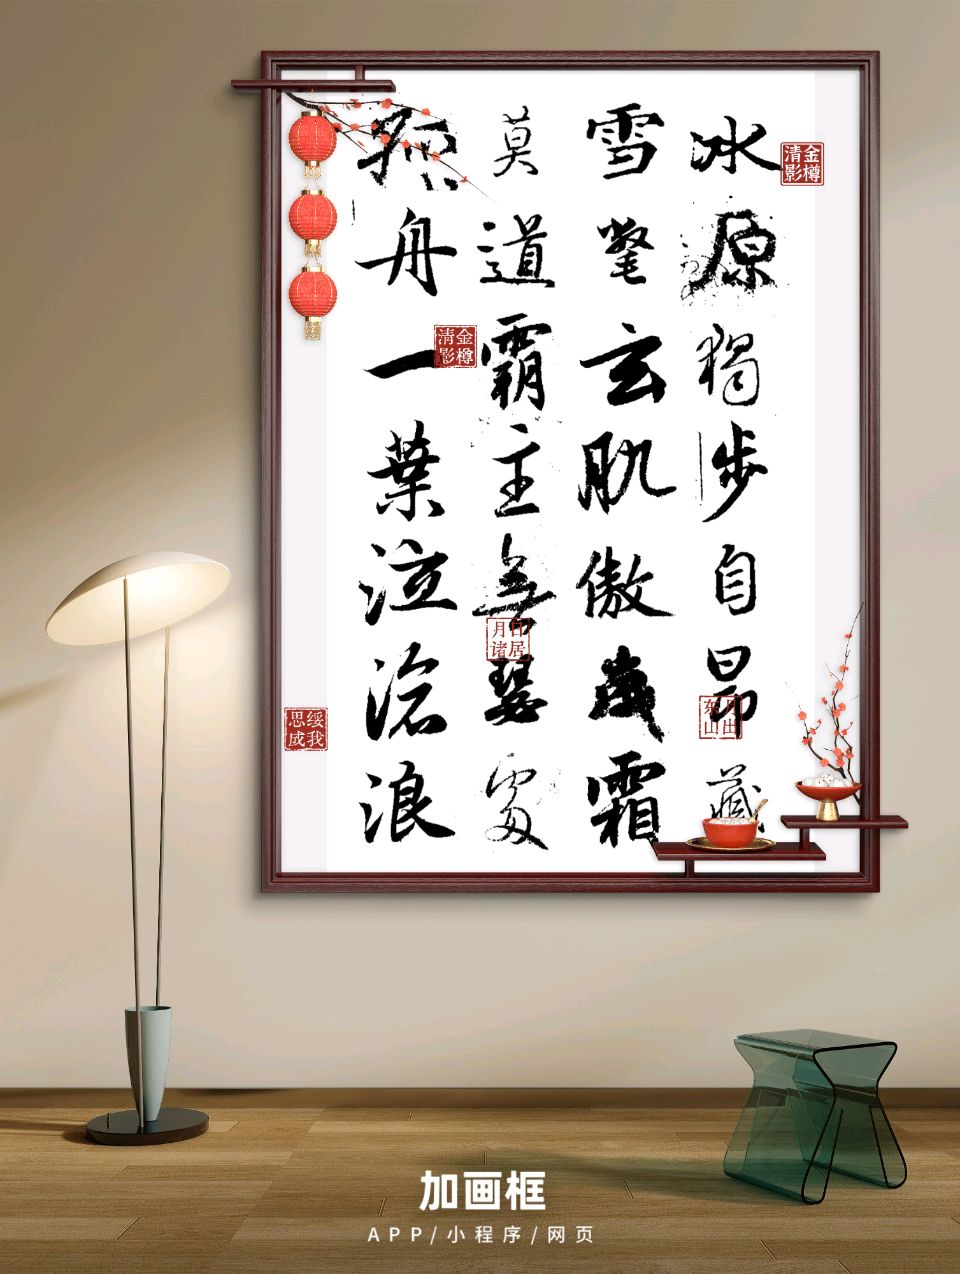 冰原獨步自昂藏
雪氅玄肌傲歲霜
莫道霸主無瑟處
孤舟一葉泣滄浪
金樽清影
金樽清影
日居月诸
月出东山
绥我思成
加画框
APP/小程序/网页